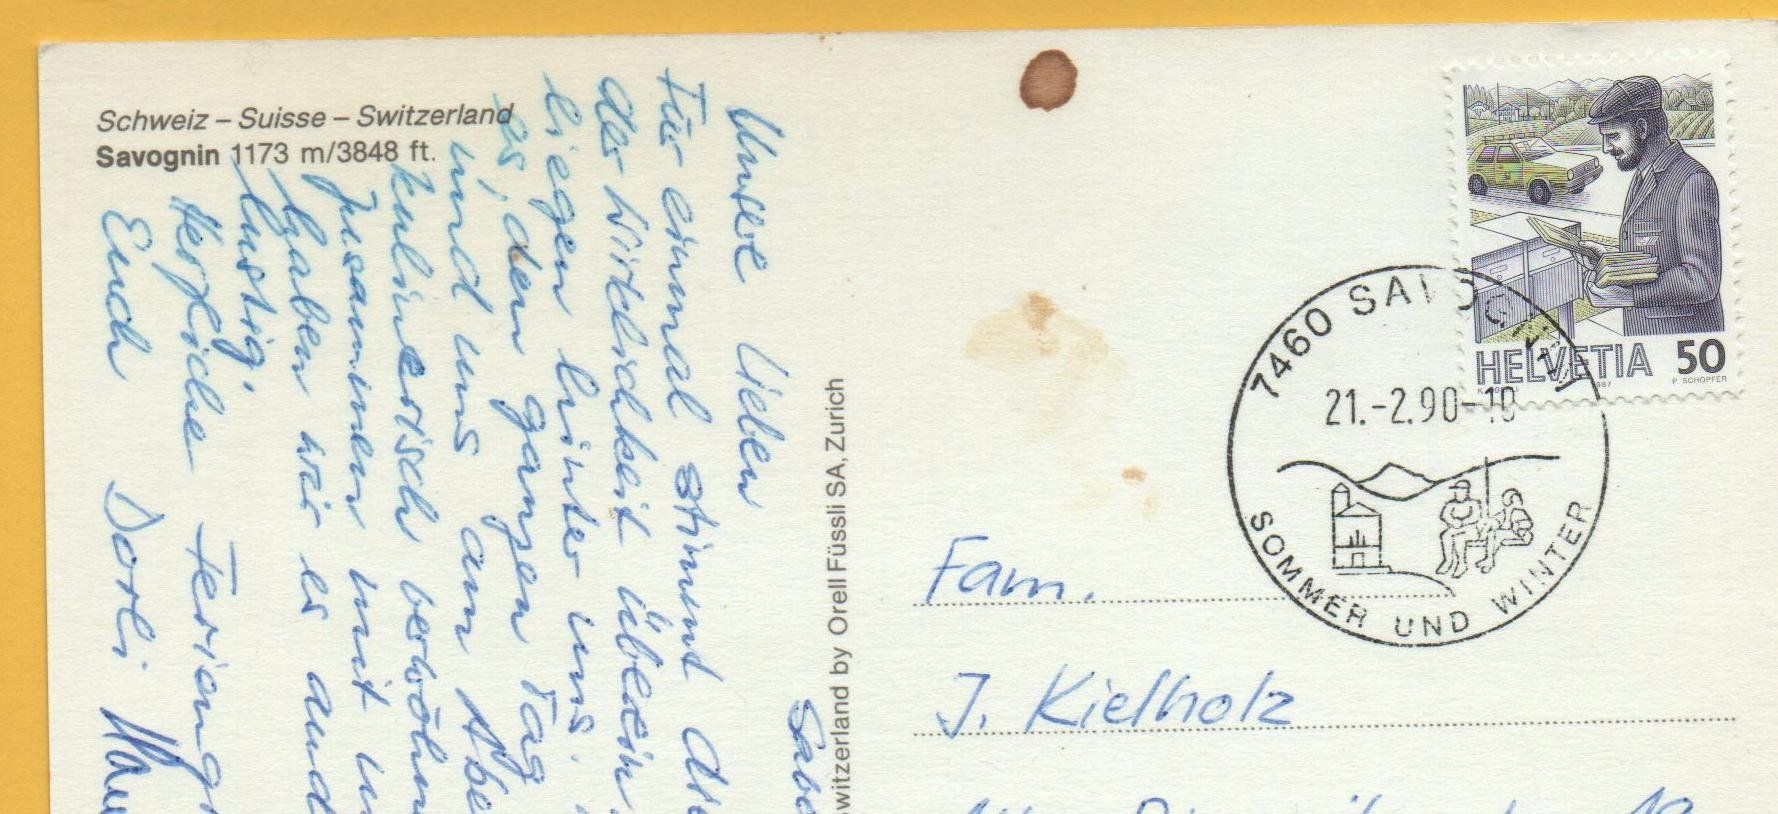 Schweiz – Suisse – Switzerland
Savognin 1173 m/3848 ft.
Unsere Lieben
Für einmal stimmt
der Wirklichkeit überein
liegen hinter uns.
es, den ganzen Tag
und uns am Abe
kulinarisch verwöhn
Zusammen mit
haben wir es
lustig.
Herzliche Feriengr
Euch Dorli
witzerland by Orell Füssli SA, Zurich
HELVETIA 50
P. SCHOPFER
7460 SAVOGNIN
21.-2.90-10
SOMMER UND WINTER
Fam.
J. Kielholz